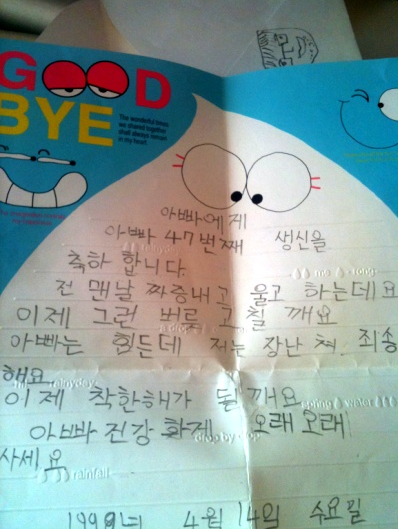 GOOD
BYE
The wonderful times
we shared together
shall always remain
in my heart
아빠에게
아빠 47번째 생신을
축하 합니다.
전 맨날 짜증내고 울고 하는데요
이제 그런 버르 고칠 깨요
아빠는 힘든데 저는 장난 쳐 죄송
해요
이제 착한해가 될 깨요
아빠 건강 화게 오래 오래
사세요
rainfall
1999년 4월 14일 수요일